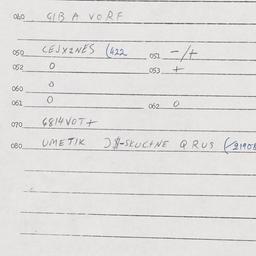 040 GIB A VORF
050 CEJXINES (422 051 -/+
052 0 053 +
060 0
061 0 062 0
070 6814VOT+
080 UMETIK J$-SKUC+NE QRUS (2190